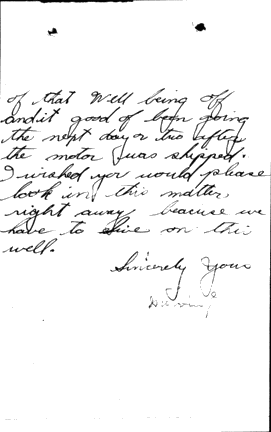 of that Well being off
and it good of been going
the next day or two after
the motor was shipped.
I wished you would please
look in this matter,
right away, beacuse we
have to live on this
well.
Sincerely Your